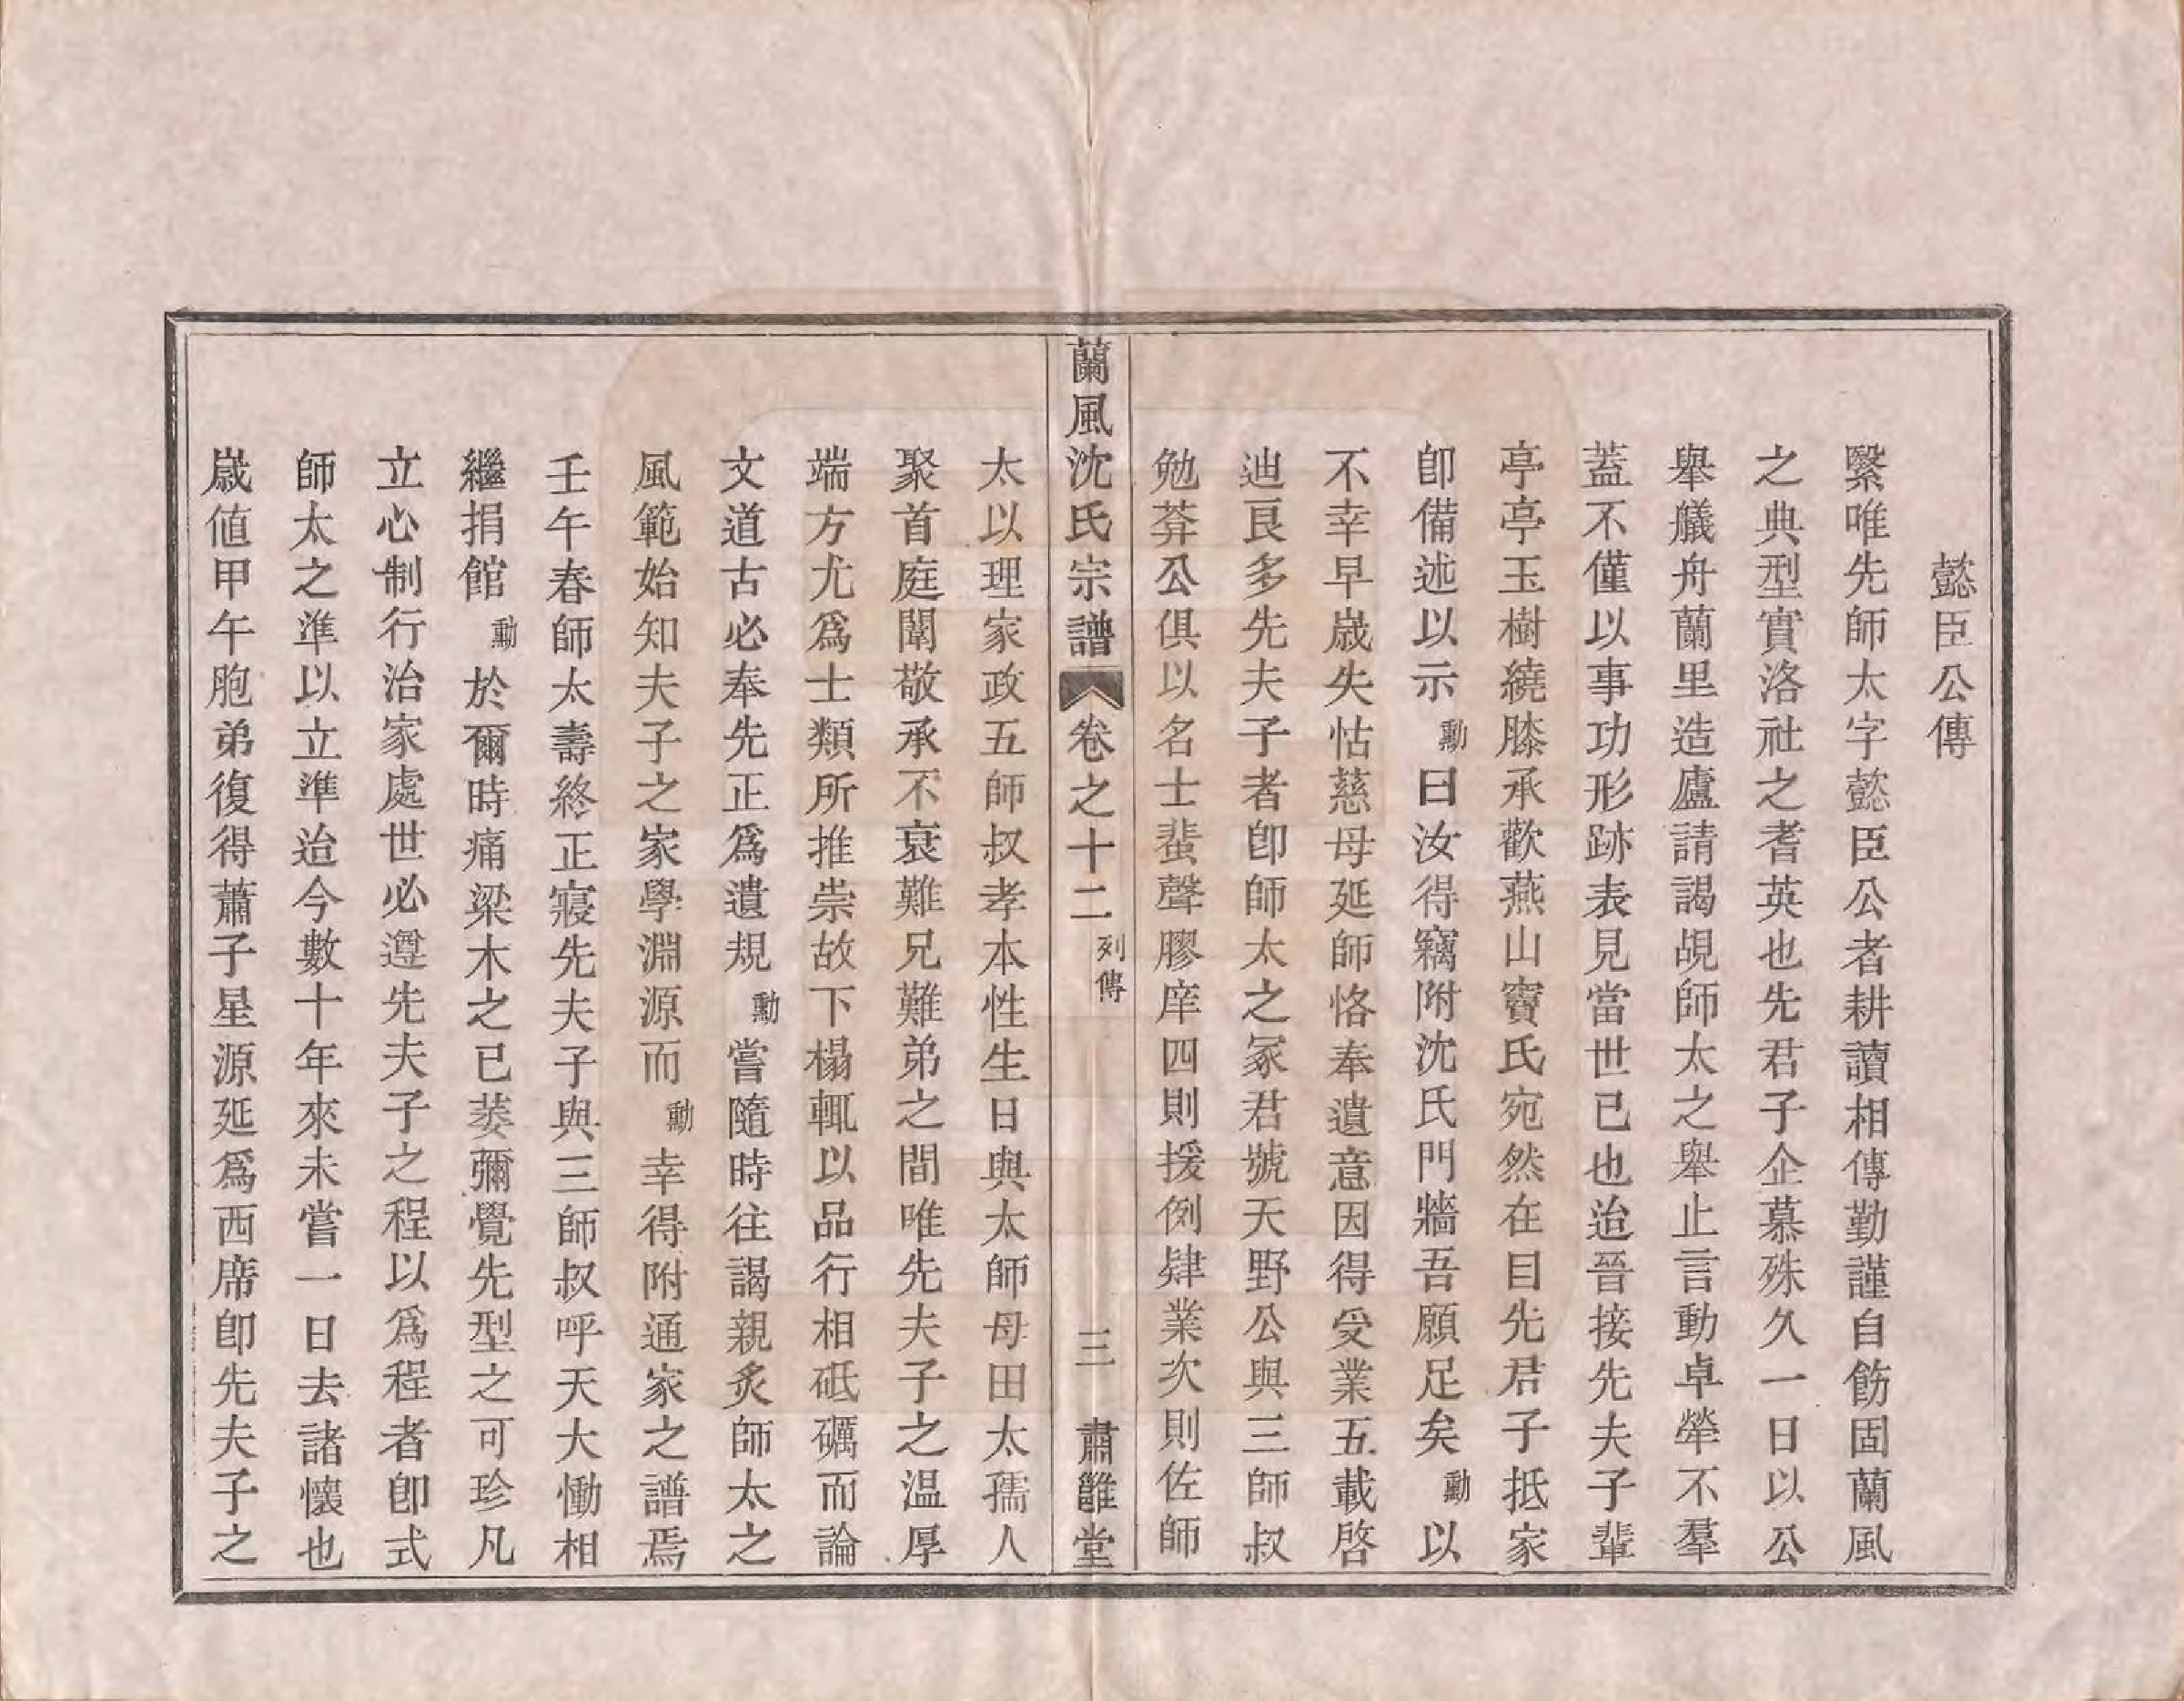 懿臣公傳
繄唯先師太字懿臣公者耕讀相傳勤謹自飭固蘭風
之典型實洛社之耆英也先君子企慕殊久一日以公
舉艤舟蘭里造廬請謁覘師太之舉止言動卓犖不羣
蓋不僅以事功形跡表見當世已也迨晉接先夫子輩
亭亭玉樹繞膝承歡燕山竇氏宛然在目先君子抵家
卽備述以示勳曰汝得竊附沈氏門牆吾願足矣勳以
不幸早歲失怙慈母延師恪奉遺意因得受業五載啓
迪良多先夫子者卽師太之冢君號天野公與三師叔
勉莽公俱以名士蜚聲膠庠四則援例肄業次則佐師
蘭風沈氏宗譜 卷之十二 列傳 三 肅雝堂
太以理家政五師叔孝本性生日與太師母田太孺人
聚首庭闈敬承不衰難兄難弟之間唯先夫子之温厚
端方尤爲士類所推崇故下榻輒以品行相砥礪而論
文道古必奉先正爲遺規勳嘗隨時往謁親炙師太之
風範始知夫子之家學淵源而勳幸得附通家之譜焉
壬午春師太壽終正寢先夫子與三師叔呼天大慟相
繼捐館勳於爾時痛梁木之已萎彌覺先型之可珍凡
立心制行治家處世必遵先夫子之程以爲程者卽式
師太之準以立準迨今數十年來未嘗一日去諸懷也
歲値甲午胞弟復得蕭子星源延爲西席卽先夫子之